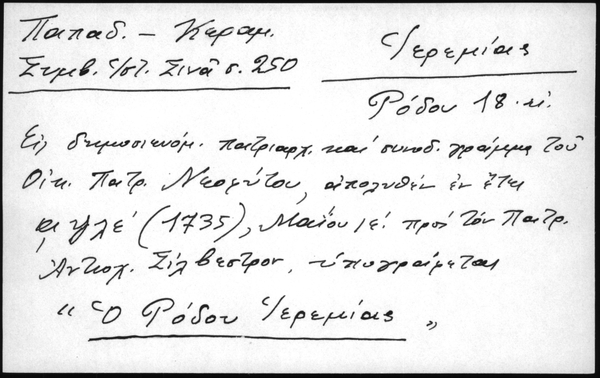 Παπαδ. – Κεραμ.
Συμβ. Ἱστ. Σινᾶ σ. 250
Ἱερεμίας
Ρόδου 18. αἰ.
Εἰς δημοσιευόμ. πατριαρχ. καί συνοδ. γράμμα τοῦ
Οἰκ. Πατρ. Νεοφύτου, ἀπολυθέν ἐν ἔτει
͵αψλε΄ (1735), Μαΐου ιε΄. πρός τόν Πατρ.
Ἀντιοχ. Σίλβεστρον, ὑπογράφεται
"Ὁ Ρόδου Ἱερεμίας"